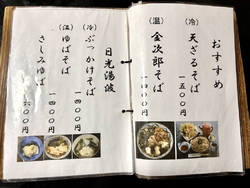 おすすめ
(冷) 天ざるそば
一五〇〇円
(温) 金次郎そば
一四〇〇円
日光湯波
(冷) ぶっかけそば
一四〇〇円
(温) ゆばそば
一四〇〇円
さしみゆば
六〇〇円